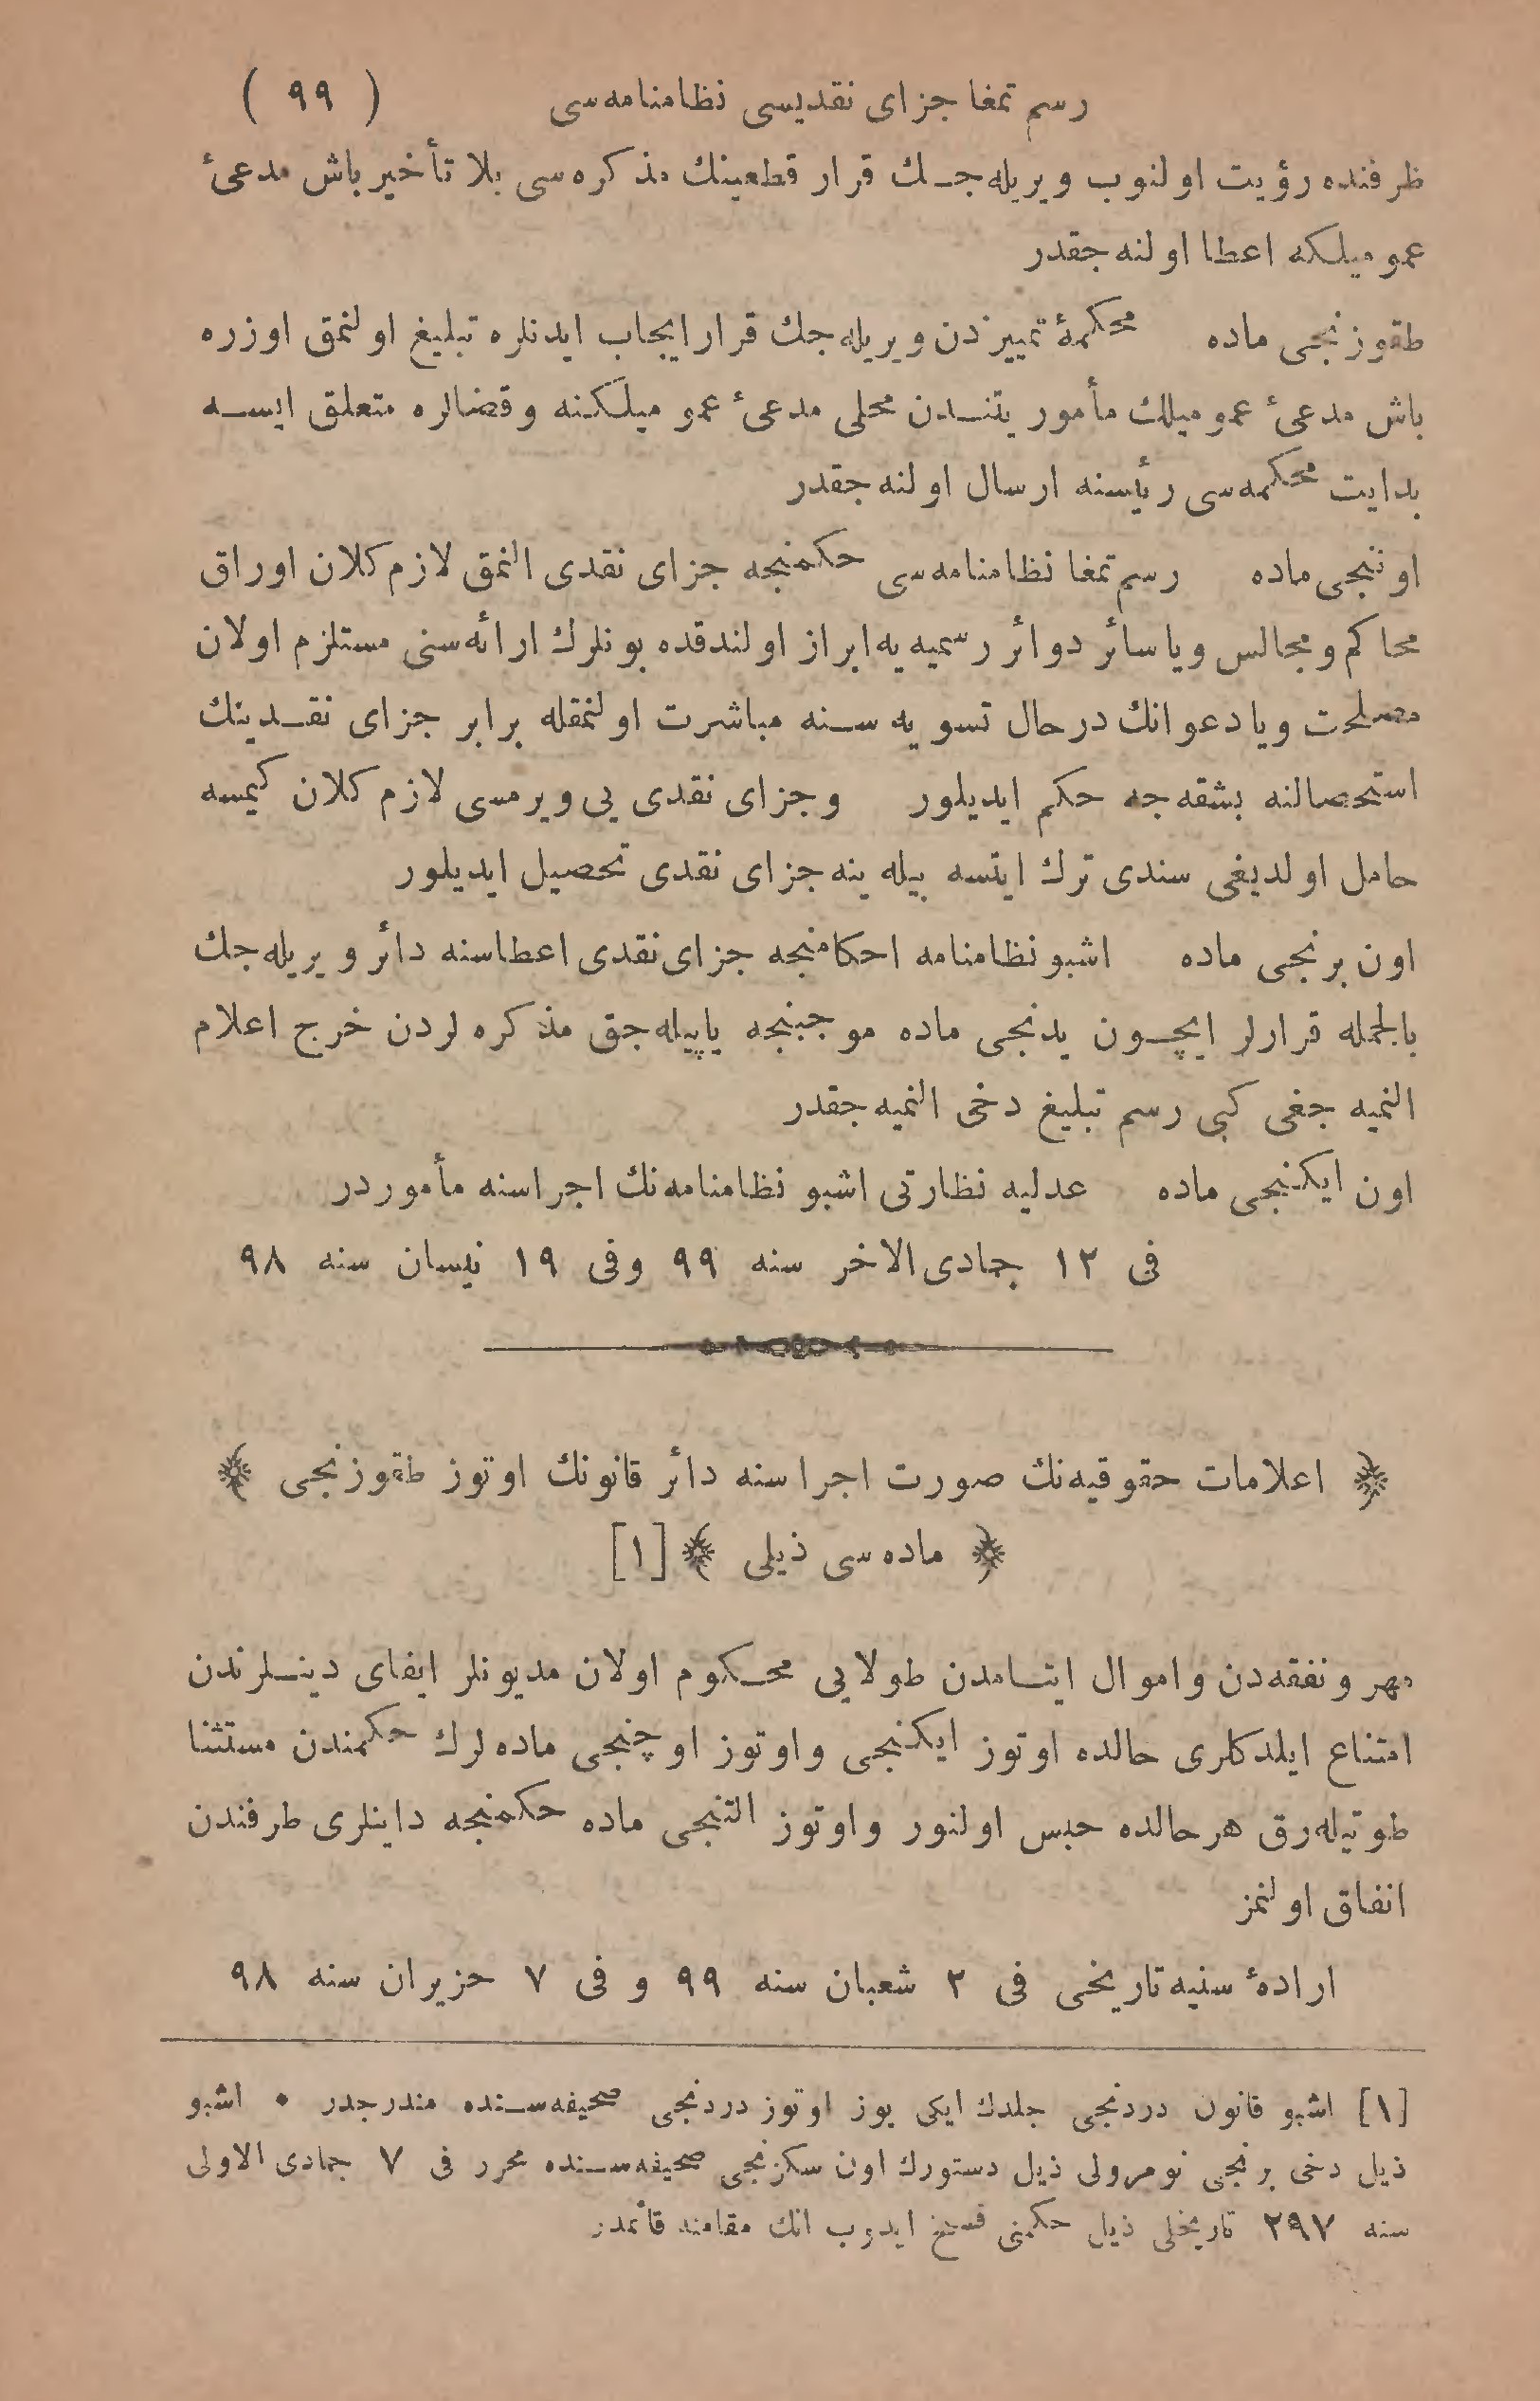 رسم تمغا جزای نقدیسی نظامنامه‌سی ( ٩٩ )
ظرفنده رؤیت اولنوب ویریله‌جك قرار قطعینك مذکره‌سی بلا تأخیر باش مدعیٔ
عمومیلکه اعطا اولنه‌جقدر
طقوزنجی ماده محکمهٔ تمییزدن ویریله‌جك قرار ایجاب ایدنلره تبلیغ اولنمق اوزره
باش مدعیٔ عمومیلك مأموریتندن محلی مدعیٔ عمومیلکنه وقضالره متعلق ایسه
بدایت محکمه‌سی رئیسنه ارسال اولنه‌جقدر
اوننجی ماده رسم تمغا نظامنامه‌سی حکمنجه جزای نقدی النمق لازم کلان اوراق
محاکم ومجالس ویا سائر دوائر رسمیه‌یه ابراز اولندقده بونلرك ارائه‌سنی مستلزم اولان
مصلحت ویا دعوانك درحال تسویه‌سنه مباشرت اولنمقله برابر جزای نقدینك
استحصالنه بشقه‌جه حکم ایدیلور وجزای نقدی یی ویرمسی لازم کلان کیمسه
حامل اولدیغی سندی ترك ایتسه بیله ینه جزای نقدی تحصیل ایدیلور
اون برنجی ماده اشبو نظامنامه احکامنجه جزای نقدی اعطاسنه دائر ویریله‌جك
بالجمله قرارلر ایچون یدنجی ماده موجبنجه یاپیله‌جق مذکره‌لردن خرج اعلام
النمیه‌جغی کبی رسم تبلیغ دخی النمیه‌جقدر
اون ایکنجی ماده عدلیه نظارتی اشبو نظامنامه‌نك اجراسنه مأموردر
فی ١٢ جمادی‌الاخر سنه ٩٩ وفی ١٩ نیسان سنه ٩٨
﴿ اعلامات حقوقیه‌نك صورت اجراسنه دائر قانونك اوتوز طقوزنجی ﴾
﴿ ماده‌سی ذیلی ﴾ [١]
مهر ونفقه‌دن واموال ایتامدن طولایی محکوم اولان مدیونلر ایفای دینلرندن
امتناع ایلدکلری حالده اوتوز ایکنجی واوتوز اوچنجی ماده‌لرك حکمندن مستثنا
طوتیله‌رق هرحالده حبس اولنور واوتوز التنجی ماده حکمنجه داینلری طرفندن
انفاق اولنمز
ارادهٔ سنیه تاریخی فی ٢ شعبان سنه ٩٩ و فی ٧ حزیران سنه ٩٨
[١] اشبو قانون دردنجی جلدك ایکی یوز اوتوز دردنجی صحیفه‌سنده مندرجدر • اشبو
ذیل دخی برنجی نومرولی ذیل دستورك اون سکزنجی صحیفه‌سنده محرر فی ٧ جمادی الاولی
سنه ٢٩٧ تاریخلی ذیل حکمنی فسخ ایدوب انك مقامنه قائمدر